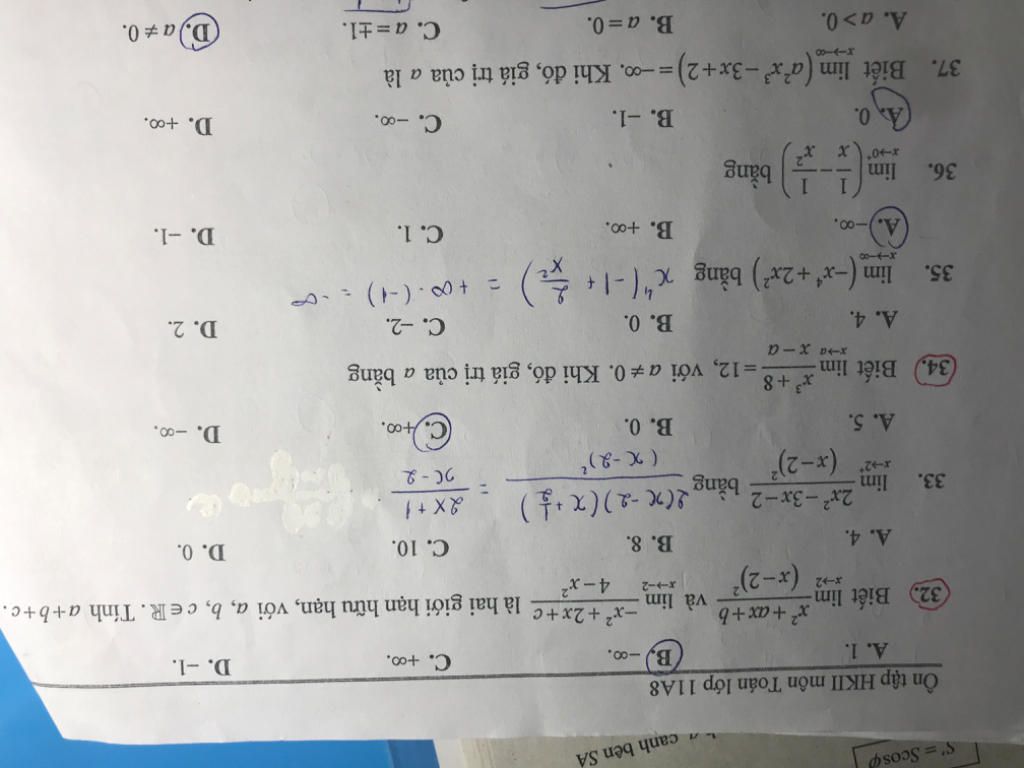 S' = Scosφ
cạnh bên SA
Ôn tập HKII môn Toán lớp 11A8
A. 1. B. −∞. C. +∞. D. −1.
32. Biết lim_{x→2} (x² + ax + b)/(x − 2)² và lim_{x→−2} (−x² + 2x + c)/(4 − x²) là hai giới hạn hữu hạn, với a, b, c ∈ ℝ. Tính a + b + c.
A. 4. B. 8. C. 10. D. 0.
33. lim_{x→2⁺} (2x² − 3x − 2)/(x − 2)² bằng 2(x − 2)(x + 1/2)/(x − 2)² = (2x + 1)/(x − 2)
A. 5. B. 0. C. +∞. D. −∞.
34. Biết lim_{x→a} (x³ + 8)/(x − a) = 12, với a ≠ 0. Khi đó, giá trị của a bằng
A. 4. B. 0. C. −2. D. 2.
35. lim_{x→−∞} (−x⁴ + 2x²) bằng x⁴(−1 + 2/x²) = +∞ . (−1) = −∞
A. −∞. B. +∞. C. 1. D. −1.
36. lim_{x→0⁺} (1/x − 1/x²) bằng
A. 0. B. −1. C. −∞. D. +∞.
37. Biết lim_{x→−∞} (a²x³ − 3x + 2) = −∞. Khi đó, giá trị của a là
A. a > 0. B. a = 0. C. a = ±1. D. a ≠ 0.